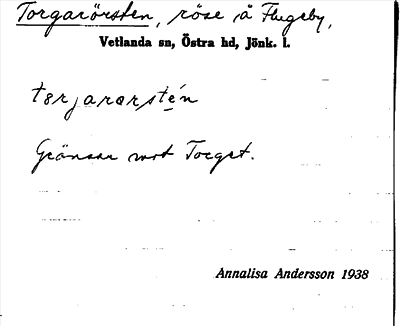 Torgarörsten, röse å Flugeby,
Vetlanda sn, Östra hd, Jönk. l.
Gränsar mot Torget.
Annalisa Andersson 1938